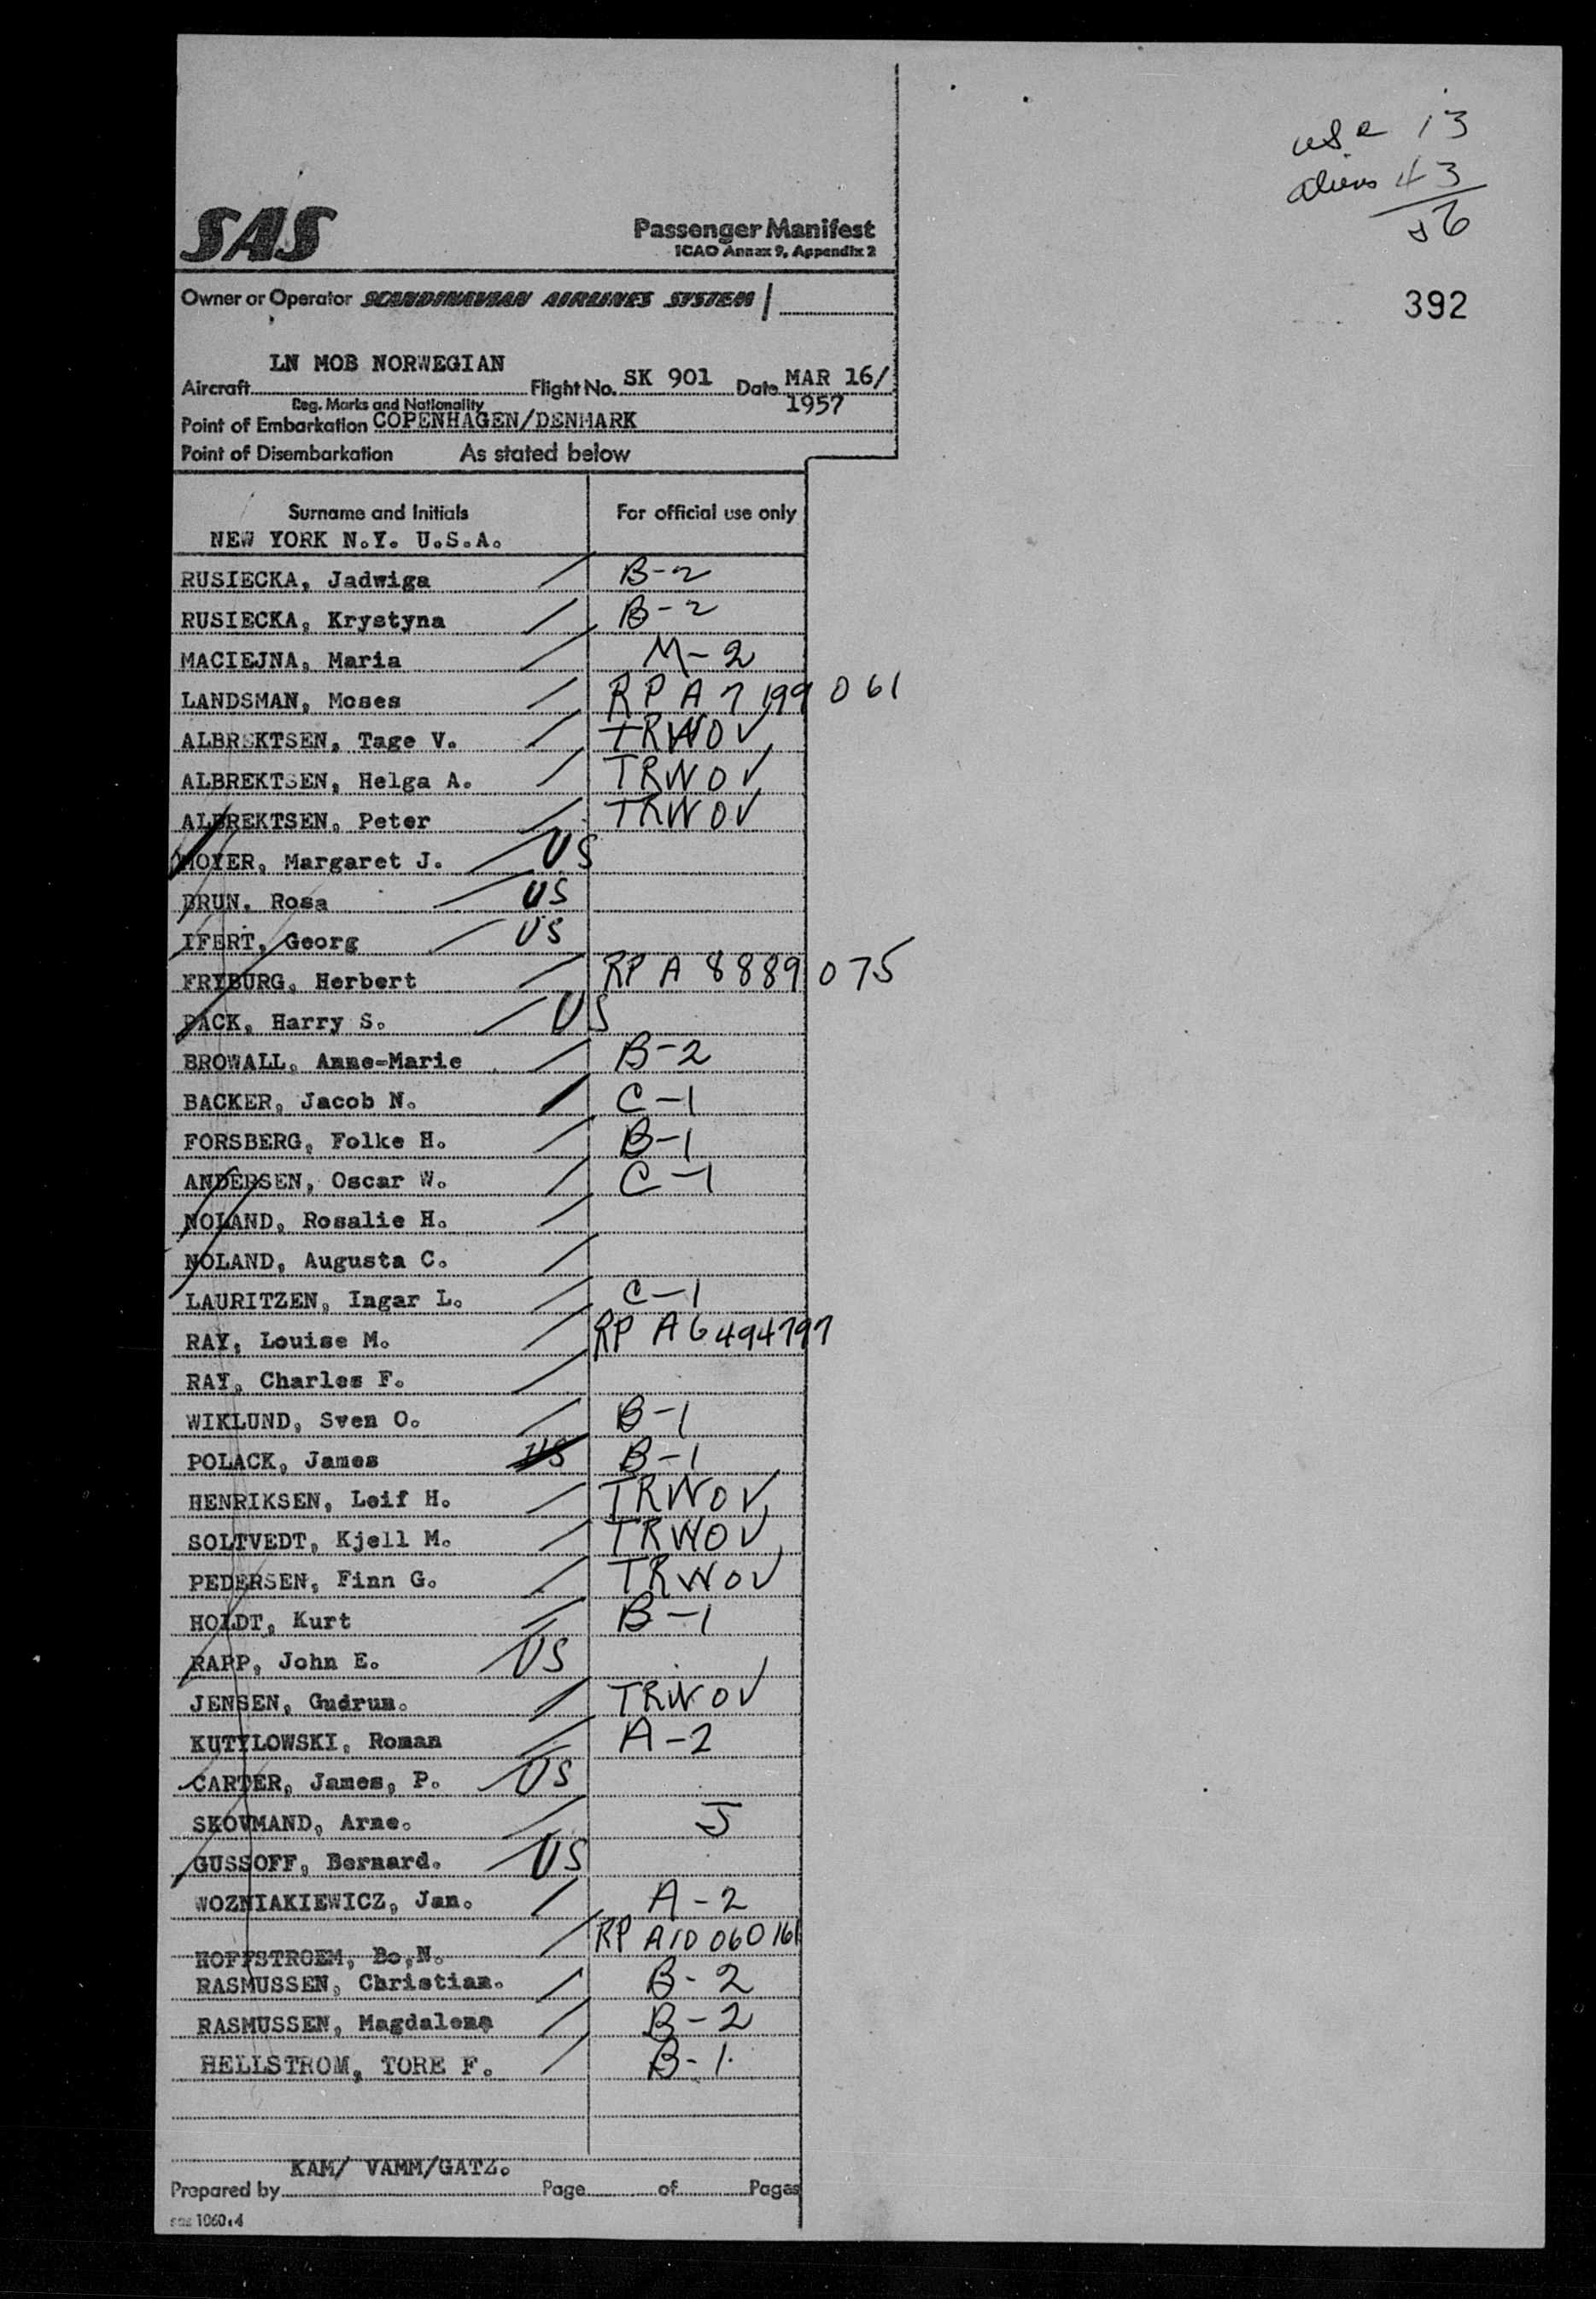 usc 13
aliens 43
56
SAS
Passenger Manifest
ICAO Annex 9, Appendix 2
Owner or Operator SCANDINAVIAN AIRLINES SYSTEM /
392
LN MOB NORWEGIAN
Aircraft Flight No. SK 901 Date MAR 16/
Reg. Marks and Nationality 1957
Point of Embarkation COPENHAGEN/DENMARK
Point of Disembarkation As stated below
Surname and Initials For official use only
NEW YORK N.Y. U.S.A.
RUSIECKA, Jadwiga B-2
RUSIECKA, Krystyna B-2
MACIEJNA, Maria M-2
LANDSMAN, Moses RP A7 199 061
ALBREKTSEN, Tage V. TRWOV
ALBREKTSEN, Helga A. TRWOV
ALBREKTSEN, Peter TRWOV
MOYER, Margaret J. US
BRUN. Rosa US
IFERT, Georg US
FRYBURG, Herbert RP A 8889 075
PACK, Harry S. US
BROWALL, Anne-Marie B-2
BACKER, Jacob N. C-1
FORSBERG, Folke H. B-1
ANDERSEN, Oscar W. C-1
NOLAND, Rosalie H.
NOLAND, Augusta C.
LAURITZEN, Ingar L. C-1
RAY, Louise M. RP A6 494797
RAY, Charles F.
WIKLUND, Sven O. B-1
POLACK, James US B-1
HENRIKSEN, Leif H. TRWOV
SOLTVEDT, Kjell M. TRWOV
PEDERSEN, Finn G. TRWOV
HOLDT, Kurt B-1
RAPP, John E. US
JENSEN, Gudrun. TRWOV
KUTYLOWSKI, Roman A-2
CARTER, James, P. US
SKOVMAND, Arne. J
GUSSOFF, Bernard. US
WOZNIAKIEWICZ, Jan. A-2
HOFFSTROEM, Bo,N. RP A10 060 161
RASMUSSEN, Christian. B-2
RASMUSSEN, Magdalena B-2
HELLSTROM, TORE F. B-1.
KAM/ VAMM/GATZ.
Prepared by Page of Pages
sas 1060.4